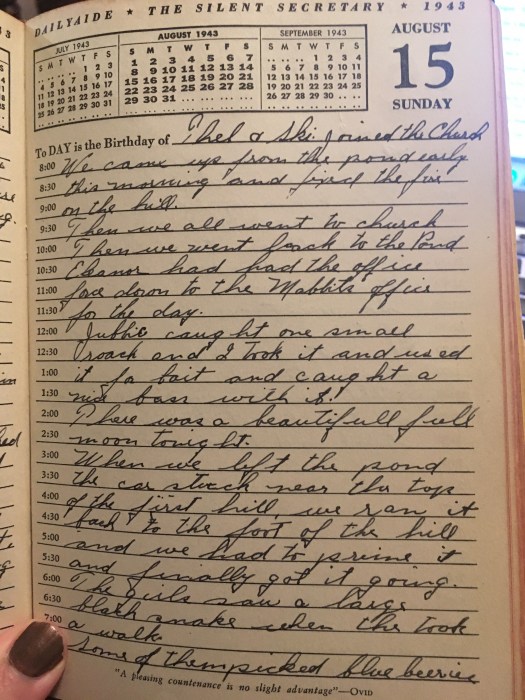 DAILYAIDE ★ THE SILENT SECRETARY ★ 1943
JULY 1943
S M T W T F S
. . . . 1 2 3
4 5 6 7 8 9 10
11 12 13 14 15 16 17
18 19 20 21 22 23 24
25 26 27 28 29 30 31
AUGUST 1943
S M T W T F S
1 2 3 4 5 6 7
8 9 10 11 12 13 14
15 16 17 18 19 20 21
22 23 24 25 26 27 28
29 30 31 . . . .
SEPTEMBER 1943
S M T W T F S
. . . 1 2 3 4
5 6 7 8 9 10 11
12 13 14 15 16 17 18
19 20 21 22 23 24 25
26 27 28 29 30 . .
AUGUST
15
SUNDAY
To DAY is the Birthday of Thel & Ski joined the Church
8:00 We came up from the pond early
8:30 this morning and fixed the fire
9:00 on the hill.
9:30 Then we all went to church
10:00 Then we went back to the Pond
10:30 Eleanor had had the office
11:00 down to the office
11:30 for the day.
12:00 caught one small
12:30 roach and I took it and used
1:00 it fo bait and caught a
1:30 nice bass with it!
2:00 There was a beautifull full
2:30 moon tonight.
3:00 When we left the pond
3:30 the car stuck near the top
4:00 of the first hill, we ran it
4:30 back to the foot of the hill
5:00 and we had to prime it
5:30 and finally got it going.
6:00 The girls saw a large
6:30 blach snake when the took
7:00 a walk.
some of them picked blue beeries
"A pleasing countenance is no slight advantage"—OVID